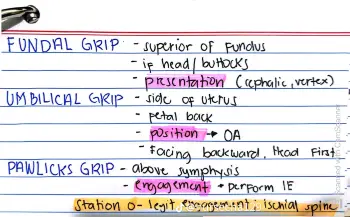 FUNDAL GRIP - superior of Fundus
- if head/buttocks
- presentation (cephalic, vertex)
UMBILICAL GRIP - side of uterus
- fetal back
- position → OA
- Facing backward, Head First
PAWLICKS GRIP - above symphysis
- engagement → perform IE
Station 0 - legit engagement, ischial spine